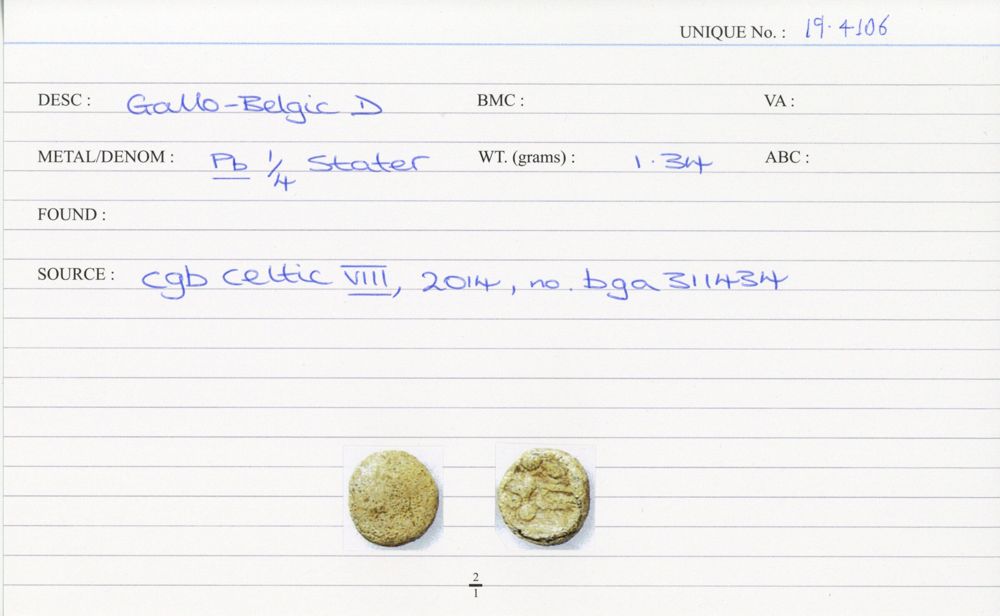 UNIQUE No. : 19.4106
DESC : Gallo-Belgic D BMC : VA :
METAL/DENOM : Pb 1/4 Stater WT. (grams) : 1.34 ABC :
FOUND :
SOURCE : cgb celtic VIII, 2014, no. bga311434
2/1